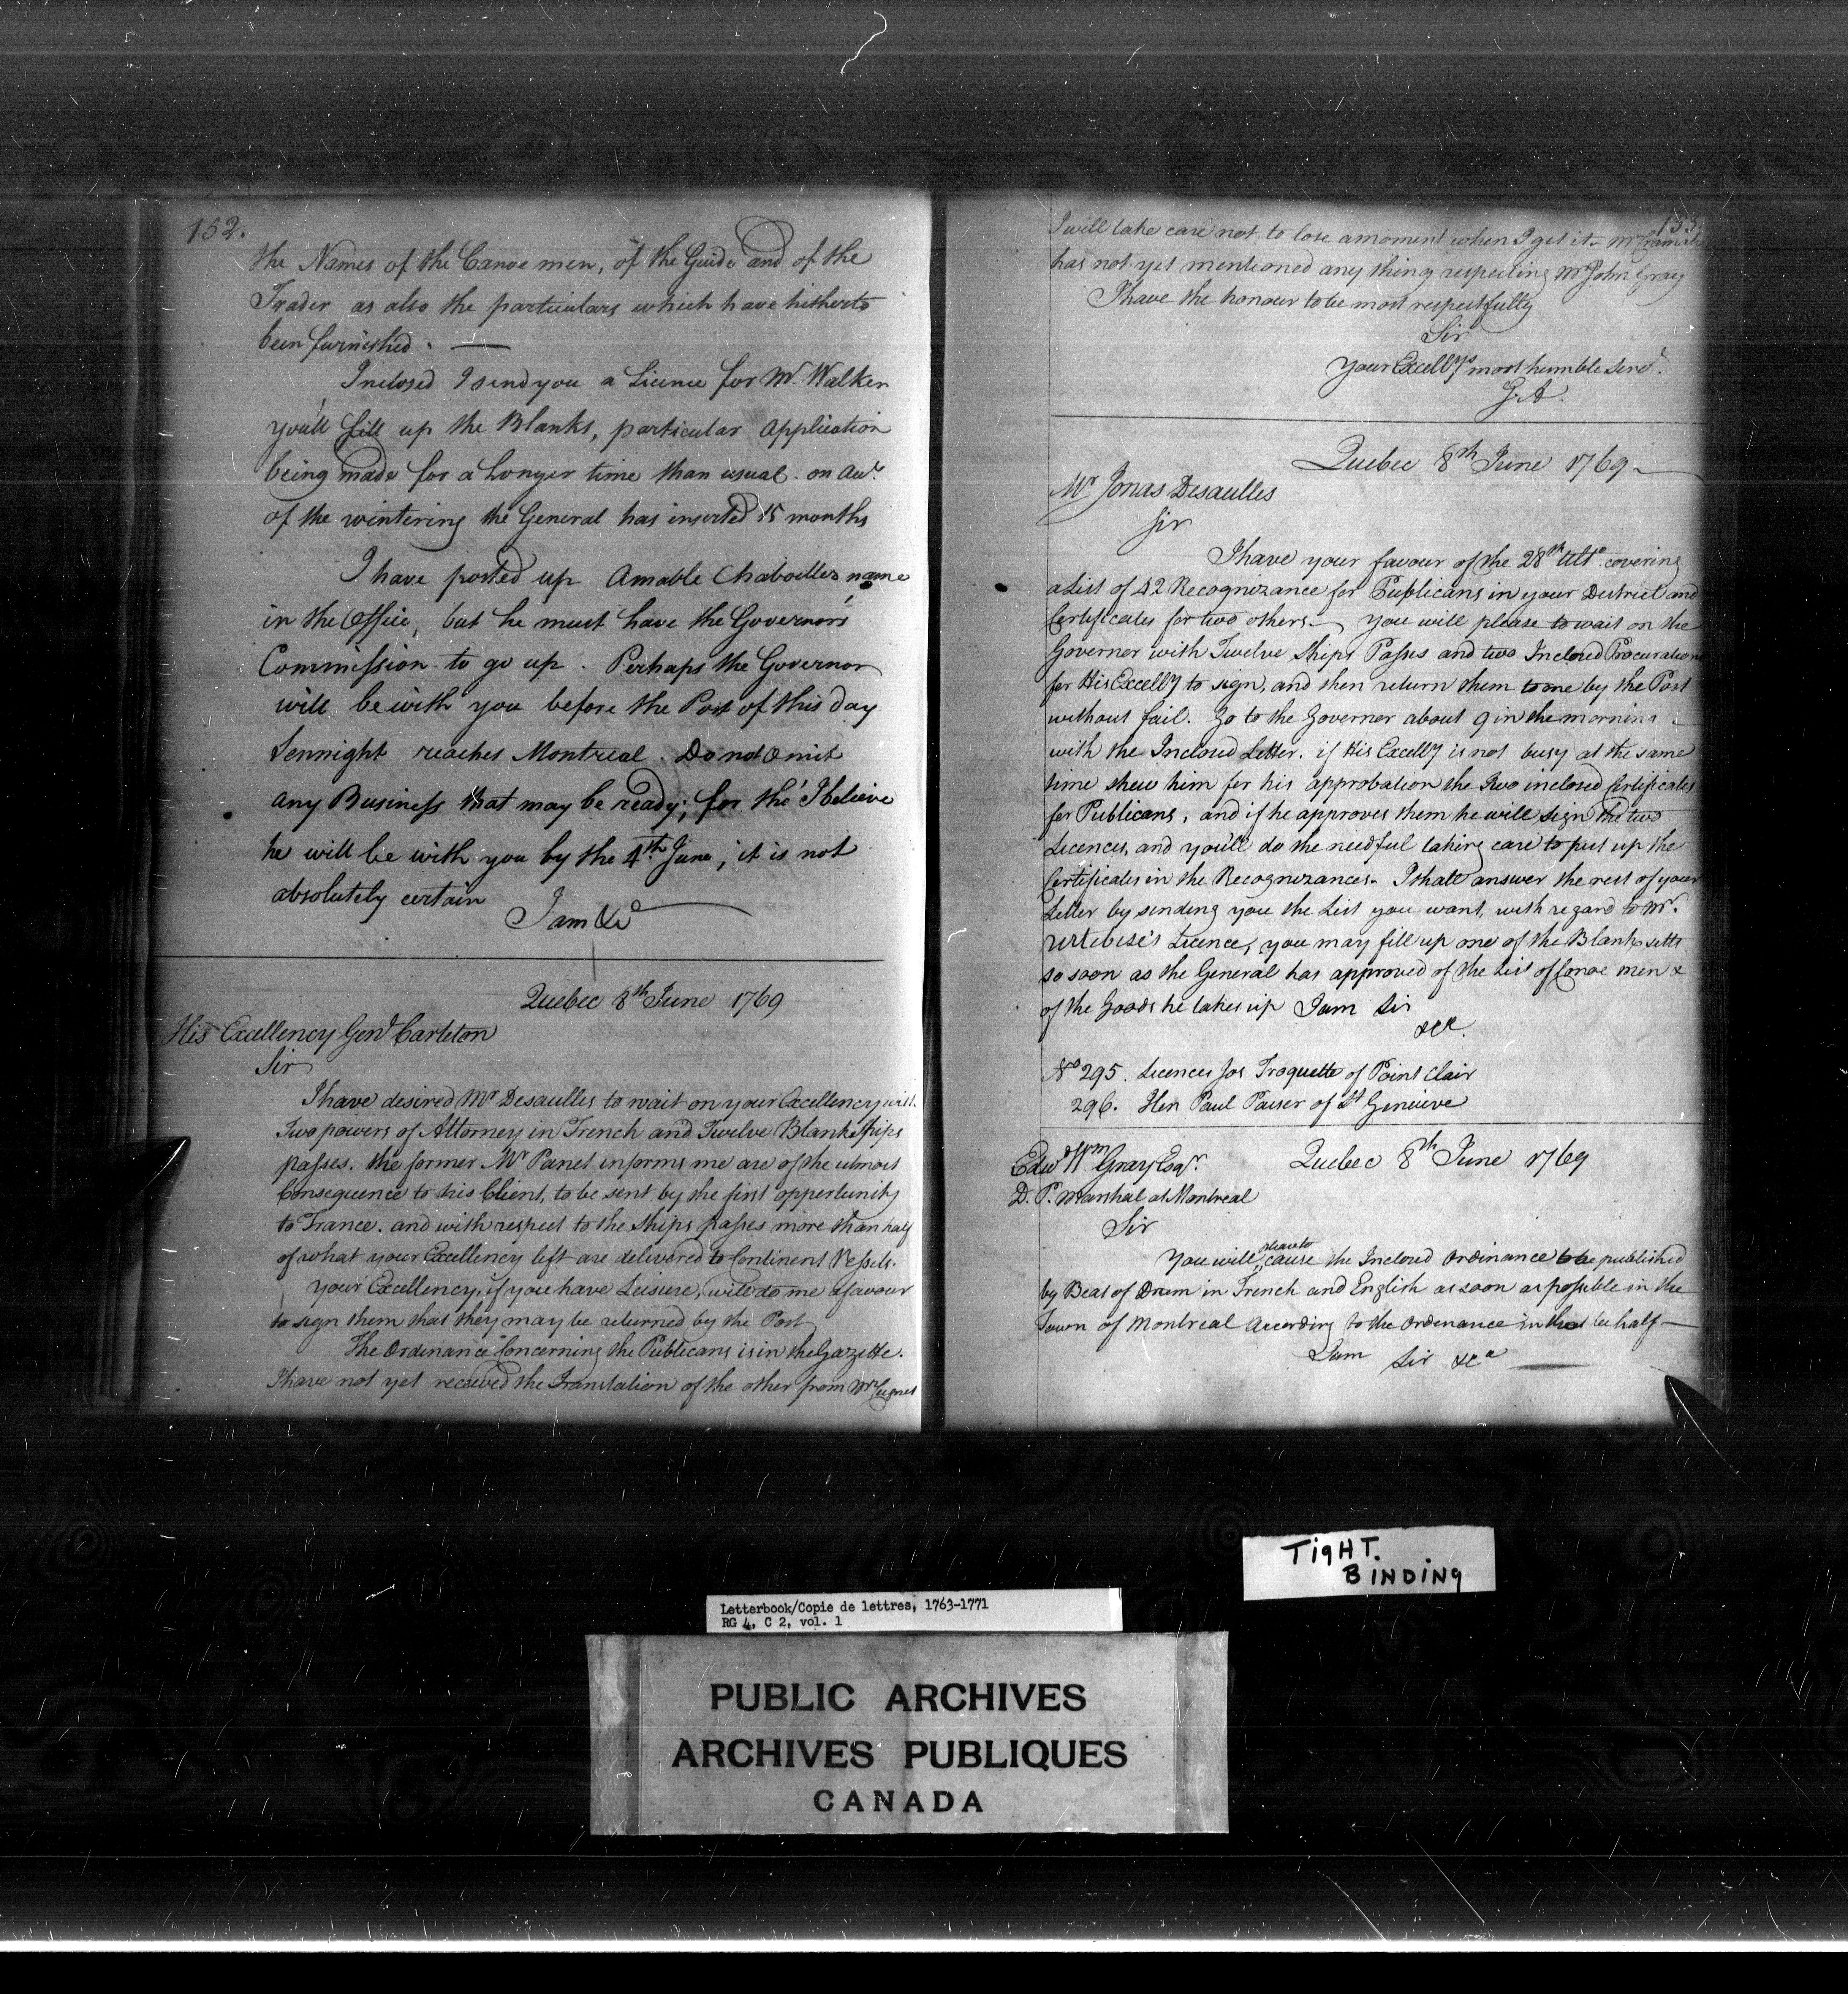 152.
the Names of the Canoe men, of the Guide and of the
Trader as also the particulars which have hitherto
been furnished. —
Inclosed I send you a Licence for Mr. Walker
you'll fill up the Blanks, particular Application
being made for a Longer time than usual. on Acct.
of the wintering the General has inserted 15 months
I have posted up Amable Chaboillez name
in the Office, but he must have the Governors
Commission to go up. Perhaps the Governor
will be with you before the Post of this day
Sennight reaches Montreal. Do not Omit
any Business that may be ready; for tho' I believe
he will be with you by the 4th. June, it is not
absolutely certain
I am &c
Quebec 8th June 1769
His Excellency Genl Carleton
Sir
I have desired Mr Desaulles to wait on your Excellency with
Two powers of Attorney in French and Twelve Blank Ships
passes. the former Mr Panet informs me are of the utmost
Consequence to his Client, to be sent by the first oppertunity
to France. and with respect to the Ships passes more than half
of what your Excellency left are delivered to Continent Vessels.
your Excellency, if you have Leisure, will do me a favour
to sign them that they may be returned by the Post
The Ordinance Concerning the Publicans is in the Gazette.
I have not yet received the Translation of the other from Mr Cugnet
153.
I will take care not to lose a moment when I get it - Mr
has not yet mentioned any thing respecting Mr John Gray
I have the honour to be most respectfully
Sir
your Excelly's most humble Servt.
G.A.
Quebec 8th June 1769
Mr Jonas Desaulles
Sir
I have your favour of the 28th Ulto. covering
a List of 42 Recognizance for Publicans in your District and
Certificates for two others - you will please to wait on the
Governer with Twelve Ships Passes and two Inclosed Procurations
for His Excelly to sign, and then return them to me by the Post
without fail. Go to the Governor about 9 in the morning
with the Inclosed Letter. if His Excelly is not busy at the same
time shew him for his approbation the Two inclosed Certificates
for Publicans, and if he approves them he will sign the two
Licences, and you'll do the needful taking care to put up the
Certificates in the Recognizances. I shall answer the rest of your
Letter by sending you the List you want, with regard to Mr.
Licence, you may fill up one of the Blank setts
so soon as the General has approved of the List of Canoe men &
of the Goods he takes up I am Sir
&ca.
No 295. Licences Jos Troquette of Point Clair
296. Hen Paul of St Genevieve
Quebec 8th June 1769
Edwd Wm Gray Esqr.
D. P. Marshal at Montreal
Sir
You will please to cause the Inclosed Ordinance to be published
by Beat of Drum in French and English as soon as possible in the
Town of Montreal According to the Ordinance in that behalf —
I am Sir &ca
TIGHT.
BINDING
Letterbook/Copie de lettres, 1763-1771
RG 4, C 2, vol. 1
PUBLIC ARCHIVES
ARCHIVES PUBLIQUES
CANADA